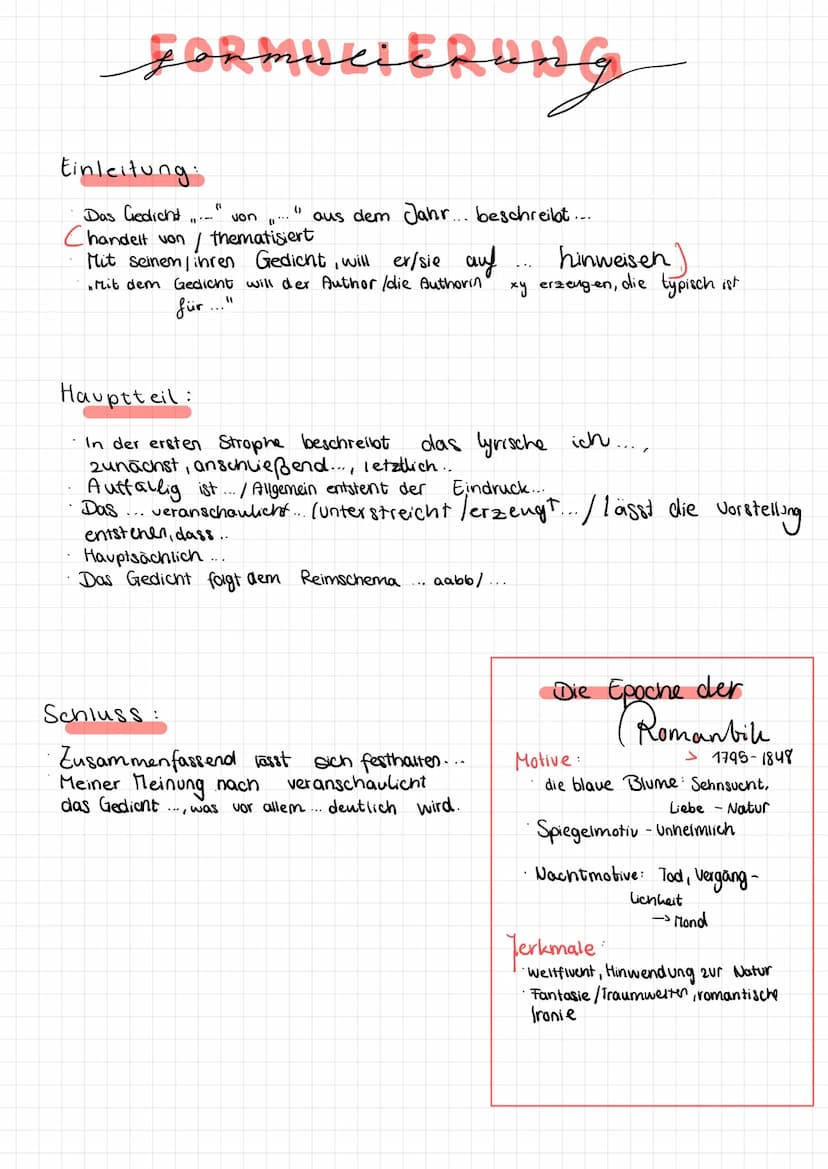 FORMULIERUNG
formulierung
Einleitung:
· Das Gedicht „..." von „..." aus dem Jahr... beschreibt...
(handelt von / thematisiert
· Mit seinem/ihren Gedicht, will er/sie auf ... hinweisen)
· „Mit dem Gedicht will der Author/die Authorin xy erzeugen, die typisch ist
für ..."
Hauptteil:
· In der ersten Strophe beschreibt das lyrische ich...,
zunächst, anschließend..., letztlich..
· Auffällig ist .../ Allgemein entsteht der Eindruck...
· Das ... veranschaulicht... (unterstreicht /erzeugt.../ lässt die Vorstellung
entstehen, dass..
· Hauptsächlich ...
· Das Gedicht folgt dem Reimschema ... aabb/...
Schluss:
· Zusammenfassend lässt sich festhalten...
· Meiner Meinung nach veranschaulicht
das Gedicht ..., was vor allem ... deutlich wird.
Die Epoche der
Romantik
> 1795-1848
Motive:
· die blaue Blume: Sehnsucht,
Liebe - Natur
· Spiegelmotiv - Unheimlich
· Nachtmotive: Tod, Vergäng-
lichkeit
→ Mond
Merkmale:
· Weltflucht, Hinwendung zur Natur
· Fantasie/Traumwelten, romantische
Ironie